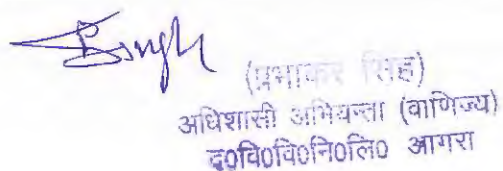 Singh
(प्रभाकर सिंह)
अधिशासी अभियन्ता (वाणिज्य)
द0वि0वि0नि0लि0 आगरा